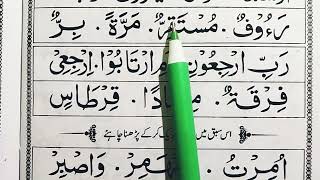 رَءُوْفٌ . مُسْتَقِرٌّ . مَرَّةً . بِرٌّ
رَبِّ ارْجِعُوْنِ . مِ ارْتَابُوْا . اِرْجِعِىْ
فِرْقَةٍ . قِرْطَاسٍ
اس سبق میں کر کے پڑھنا چاہئے
اُمِرْتُ . وَاصْبِرْ